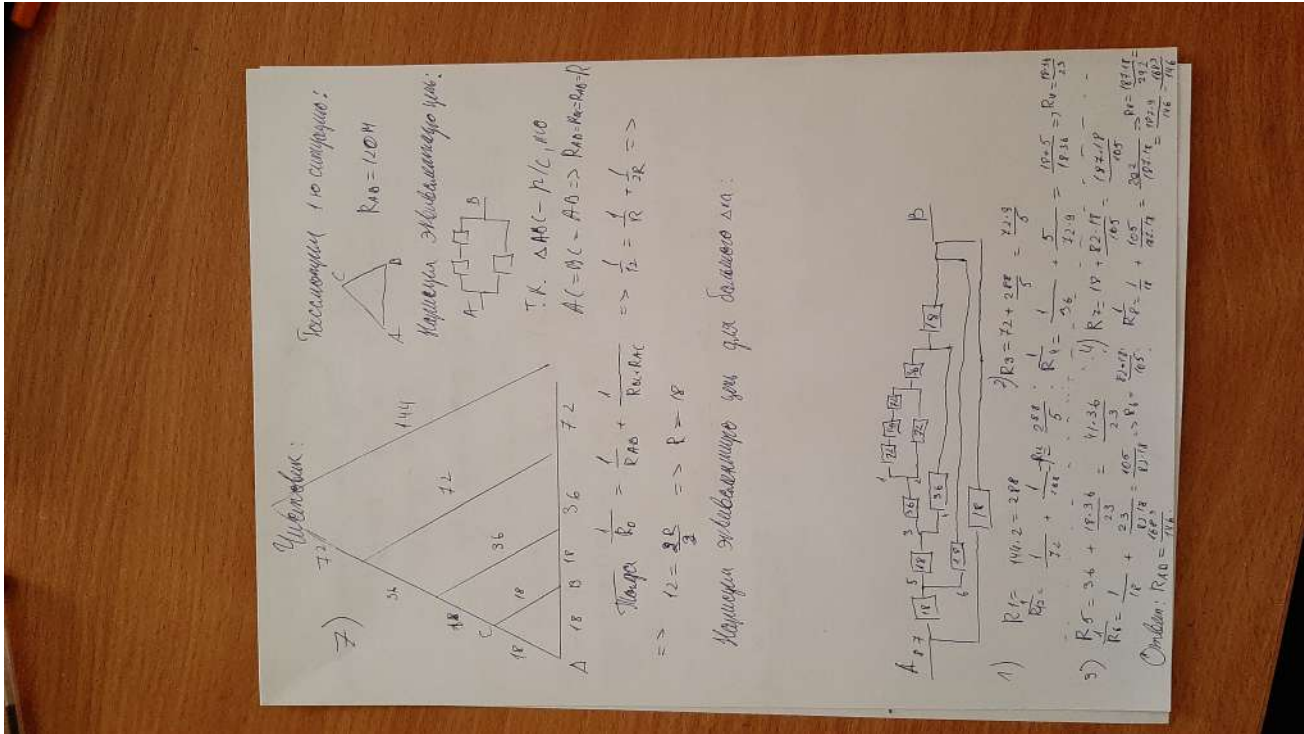 Чистовик:
7)
72
36
18
18
144
72
36
18
A 18 B 18 36 72
Рассмотрим 1ю ситуацию:
C
A B
RAB = 12 Ом
Нарисуем эквивалентную цепь:
A B
Т.К. ΔABC - р/с, то
AC = BC = AB => RAB = RBC = RAC = R
Тогда 1/R0 = 1/RAB + 1/(RBC+RAC) => 1/12 = 1/R + 1/2R =>
=> 12 = 2R/3 => R = 18
Нарисуем эквивалентную цепь для большого Δка:
A 8 7 5 3 1 B
18 18 36 72 144 72
18 36 72 36 18
18
6
1) R1 = 144·2 = 288
1/R2 = 1/72 + 1/288 R2 = 288/5
2) R3 = 72 + 288/5 = 72·9/5
1/R4 = 1/36 + 5/72·9 = 18+5/18·36 => R4 = 18·36/23
3) R5 = 36 + 18·36/23 = 41·36/23
1/R6 = 1/18 + 23/82·18 = 105/82·18 => R6 = 82·18/105
4) R7 = 18 + 82·18/105 = 187·18/105
1/R8 = 1/18 + 105/187·18 = 292/187·18 => R8 = 187·18/292 = 187·9/146 = 1683/146
Ответ: RAB = 1683/146